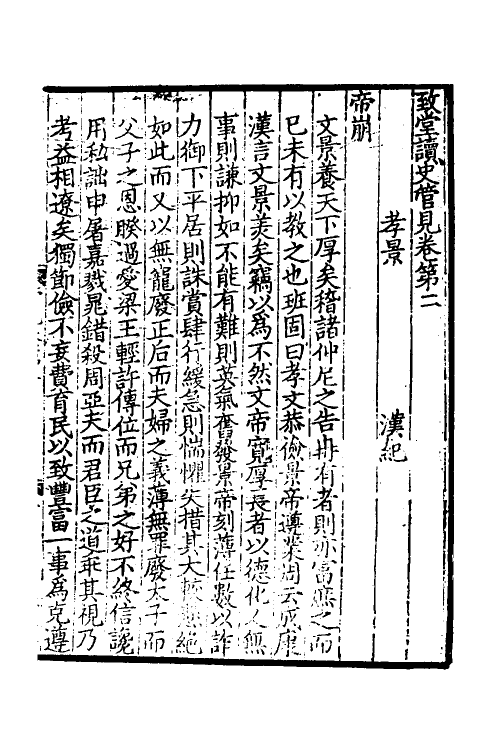 致堂讀史管見卷第二
孝景　漢紀
帝崩
文景養天下厚矣稽諸仲尼之告冉有者則亦富庶之而
已未有以教之也班固曰孝文恭儉景帝遵業周云成康
漢言文景美矣竊以爲不然文帝寛厚長者以德化人無
事則謙抑如不能有難則英氣奮發景帝刻薄任數以詐
力御下平居則誅賞肆行緩急則惴懼失措其大較懸絶
如此而又以無寵廢正后而夫婦之義薄無罪廢太子而
父子之恩睽過愛梁王輕許傳位而兄弟之好不終信讒
用私詘申屠嘉戮晁錯殺周亞夫而君臣之道乖其視乃
考益相遼矣獨節儉不妄費育民以致豐富一事爲克遵